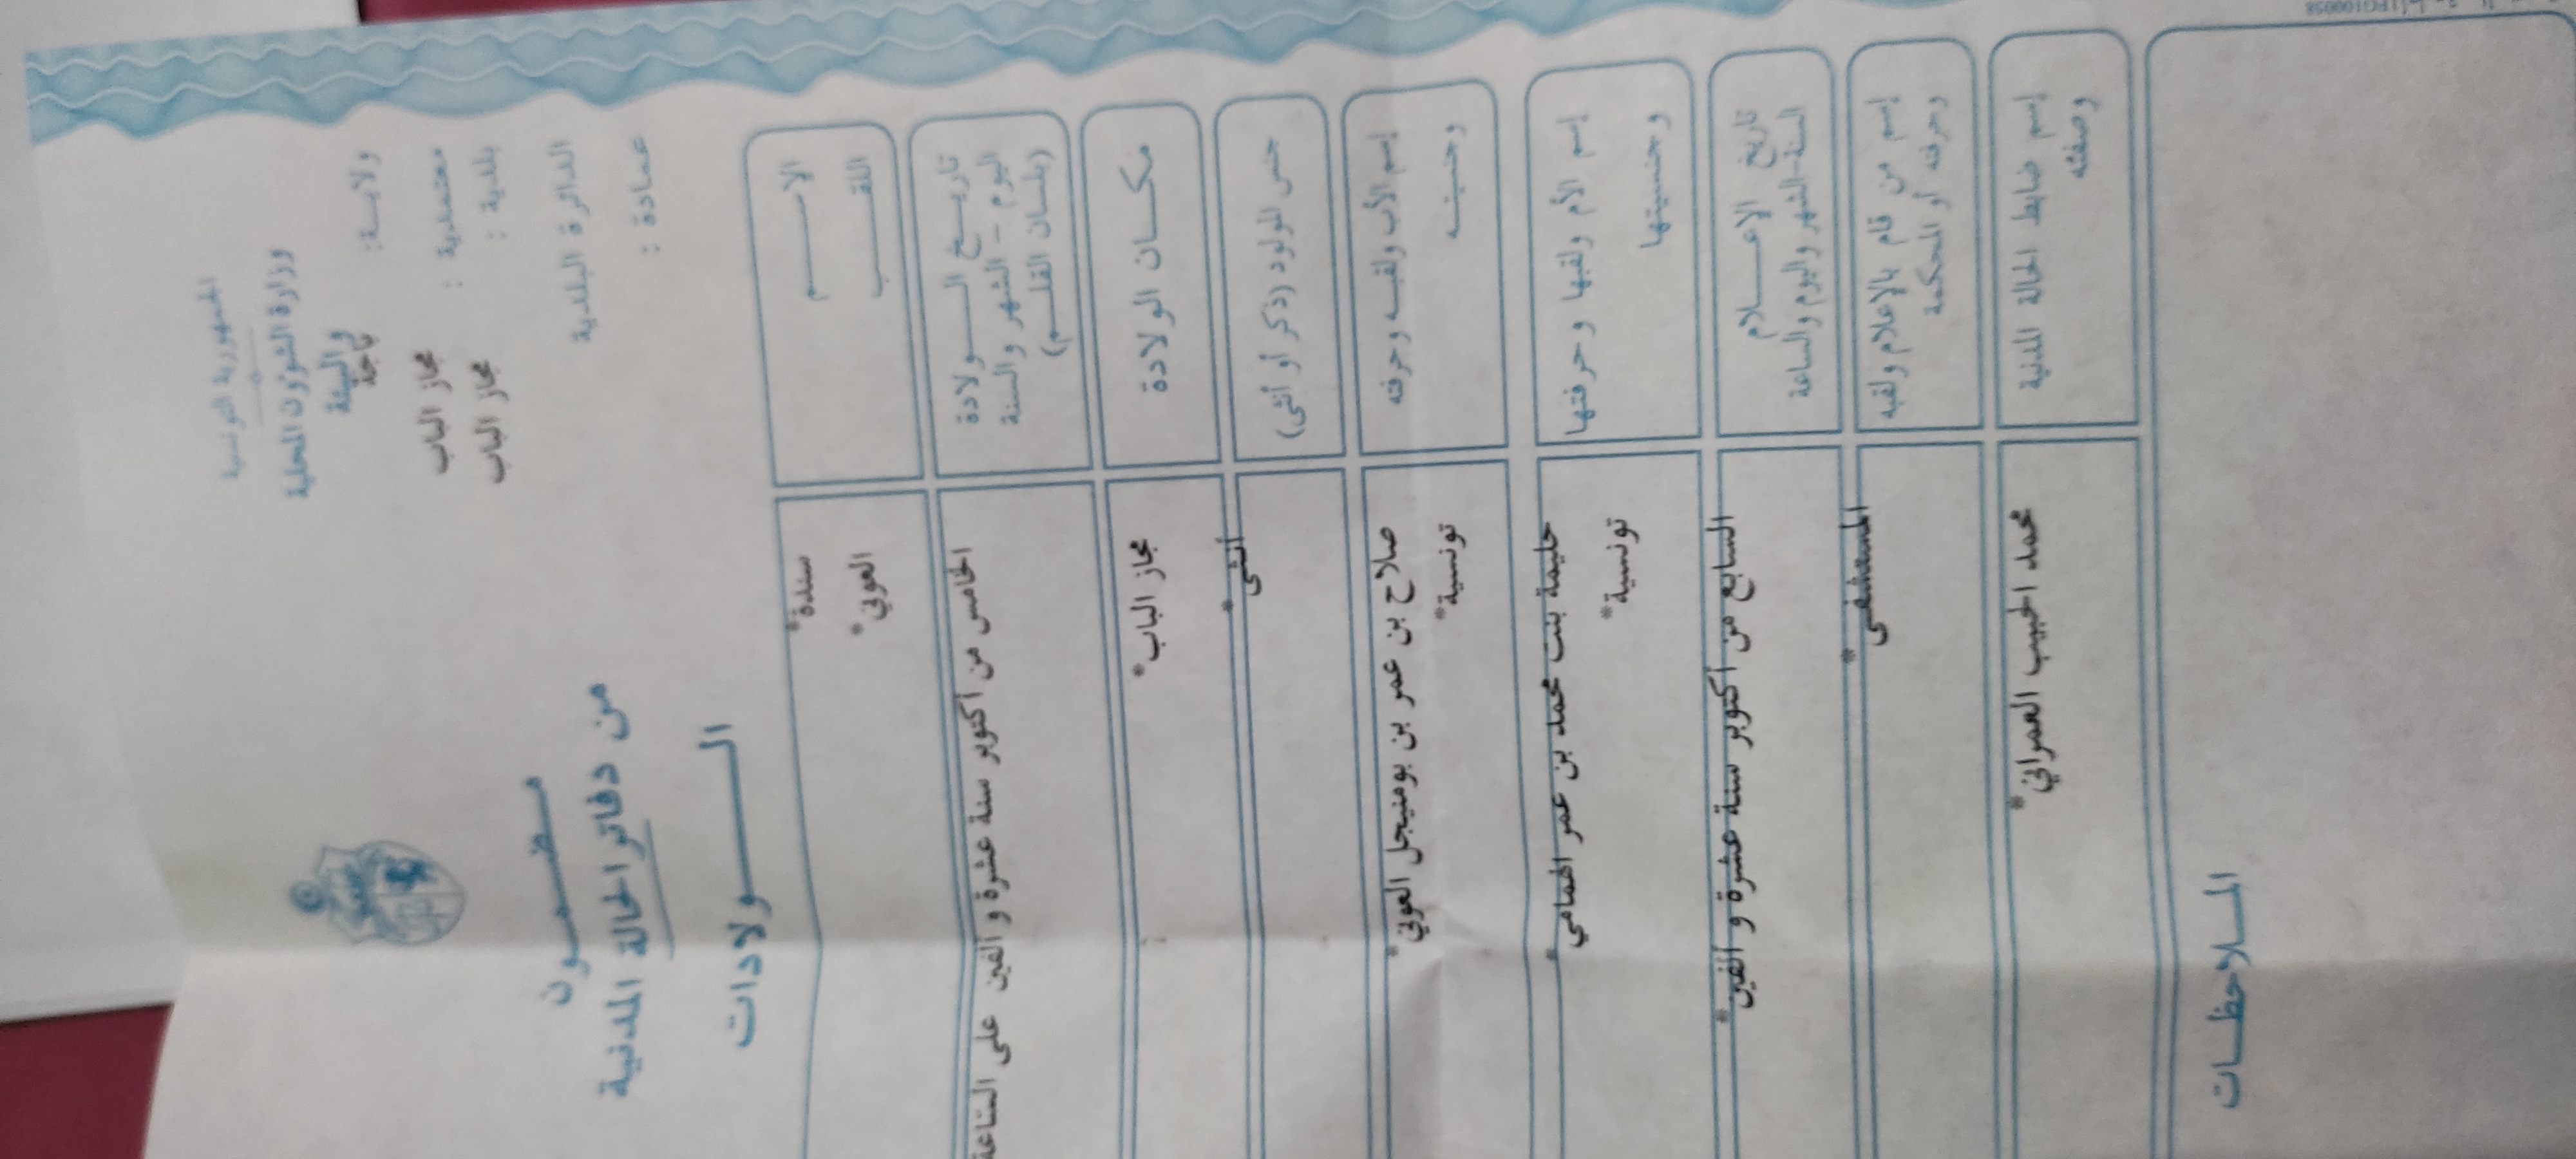 الجمهورية التونسية
وزارة الشؤون المحلية
والبيئة
ولاية: باجة
معتمدية : مجاز الباب
بلدية : مجاز الباب
الدائرة البلدية
عمادة :
مضمون
من دفاتر الحالة المدنية
الولادات
الاسم سندة*
اللقب العوني*
تاريخ الولادة
اليوم - الشهر والسنة
(بلسان القلم)
الخامس من أكتوبر سنة عشرة و ألفين على الساعة
مكان الولادة مجاز الباب*
جنس المولود (ذكر أو أنثى) أنثى*
إسم الأب ولقبه وحرفته صلاح بن عمر بن بومنيجل العوني*
وجنسيته تونسية*
إسم الأم ولقبها وحرفتها حليمة بنت محمد بن عمر الهمامي*
وجنسيتها تونسية*
تاريخ الإعلام
السنة-الشهر واليوم والساعة
السابع من أكتوبر سنة عشرة و ألفين*
إسم من قام بالإعلام ولقبه
وحرفته أو المحكمة
المستشفى*
إسم ضابط الحالة المدنية
وصفته
محمد الحبيب العمراني*
الملاحظات